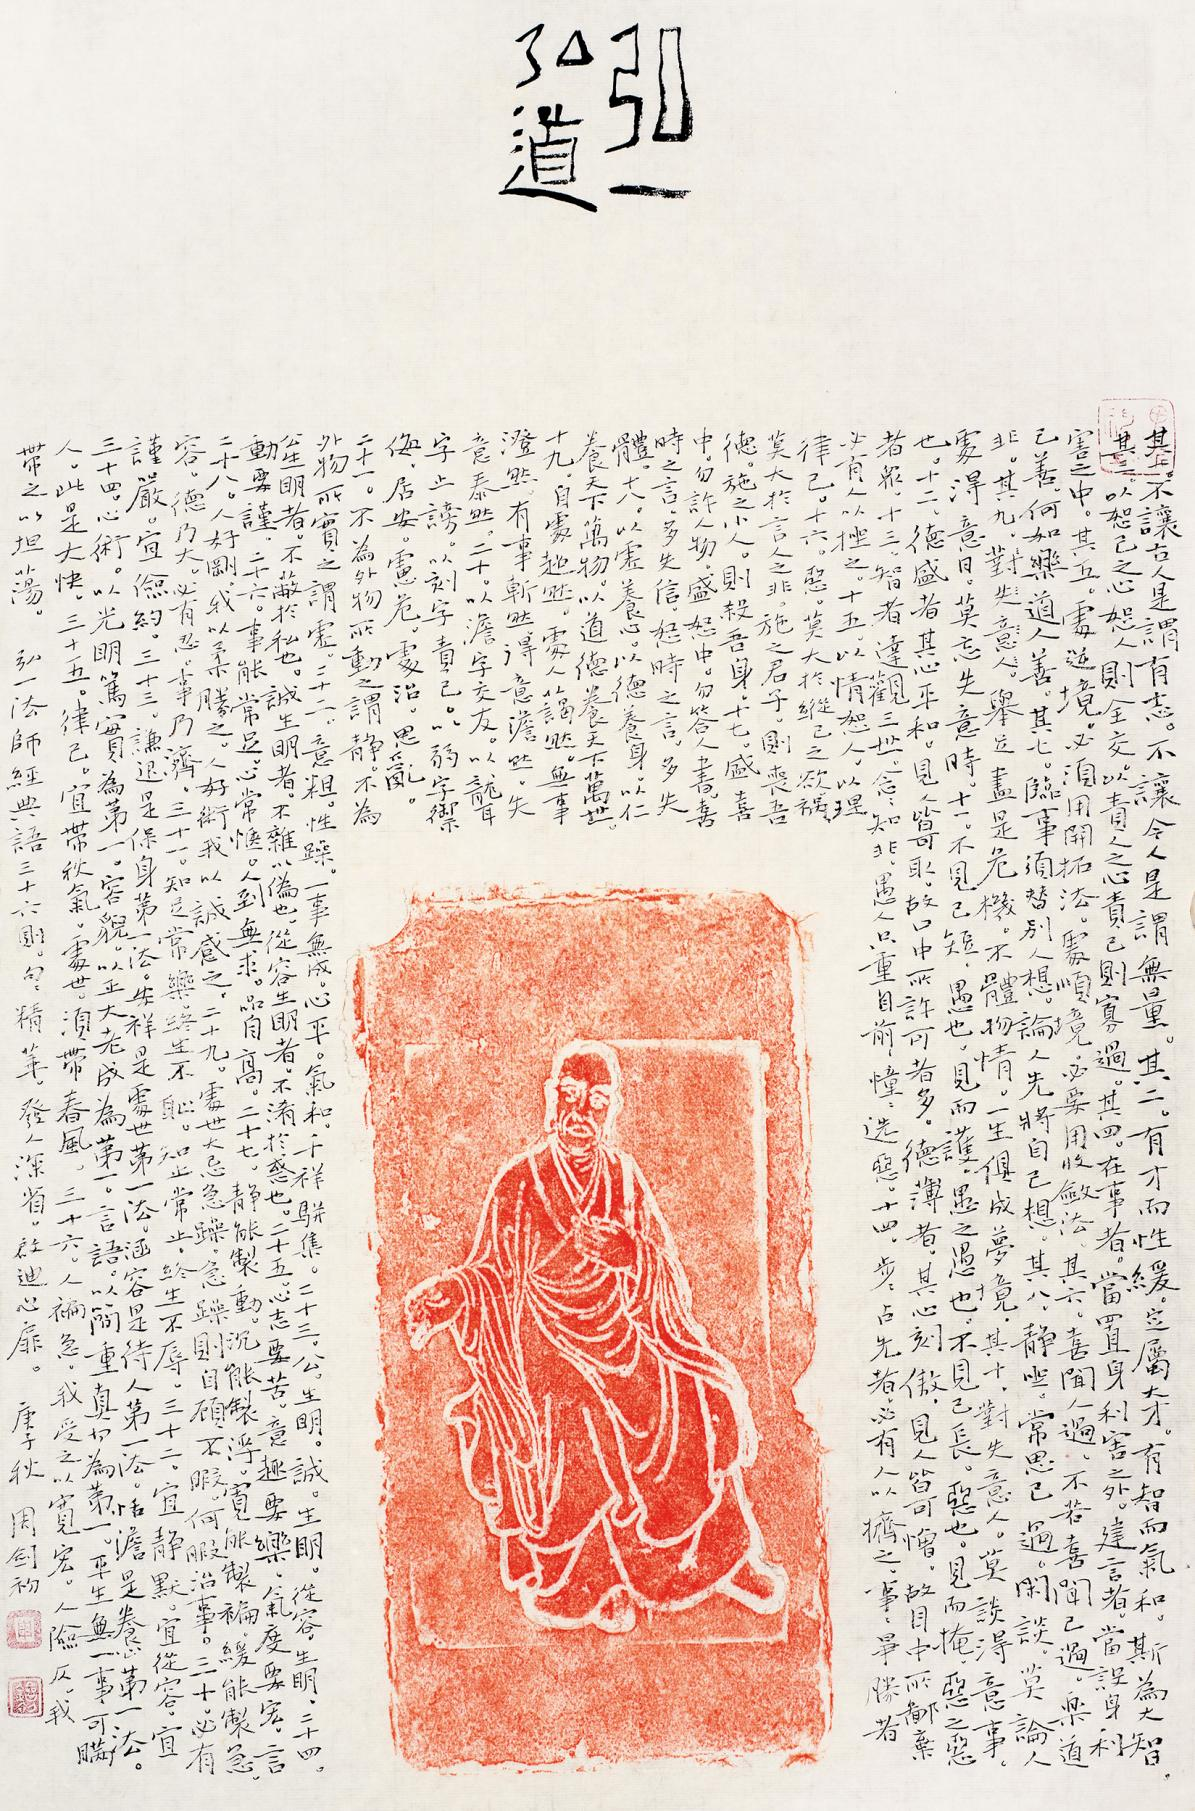 弘一
弘道
其一。不讓古人是謂有志。不讓今人是謂無量。其二。有才而性緩。定屬大才。有智而氣和。斯為大智。
其三。以恕己之心恕人則全交。以責人之心責己則寡過。其四。在事者。當置身利害之外。建言者。當設身利
害之中。其五。處逆境。必須用開拓法。處順境。必要用收斂法。其六。喜聞人過。不若喜聞己過。樂道
己善。何如樂道人善。其七。臨事須替別人想。論人先將自己想。其八。靜坐。常思己過。閑談。莫論人
非。其九。對失意人。舉足盡是危機。不體物情。一生俱成夢境。其十。對失意人。莫談得意事。
處得意日。莫忘失意時。十一。不見己短。愚也。見而護。愚之愚也。不見己長。惡也。見而掩。惡之惡
也。十二。德盛者其心平和。見人皆可取。故口中所許可者多。德薄者。其心刻傲。見人皆可憎。故目中所鄙棄
者眾。十三。智者達觀三世。念念知非。愚人只重目前。憧憧造惡。十四。步步占先者。必有人以擠之。事事爭勝者
必有人以挫之。十五。以情恕人。以理
律己。十六。惡。莫大於縱己之欲。禍
莫大於言人之非。施之君子。則喪吾
德。施之小人。則殺吾身。十七。盛喜
中。勿許人物。盛怒中。勿答人書。喜
時之言。多失信。怒時之言。多失
體。十八。以虛養心。以德養身。以仁
養天下萬物。以道德養天下萬世。
十九。自處超然。處人藹然。無事
澄然。有事斬然。得意澹然。失
意泰然。二十。以澹字交友。以聾
字止謗。以刻字責己。以弱字禦
侮。居安。慮危。處治。思亂。
二十一。不為外物所動之謂靜。不為
外物所實之謂虛。二十二。意粗。性躁。一事無成。心平。氣和。千祥駢集。二十三。公。生明。誠。生明。從容。生明。二十四。
公生明者。不蔽於私也。誠生明者。不雜以偽也。從容生明者。不淆於惑也。二十五。心志要苦。意趣要樂。氣度要宏。言
動要謹。二十六。事能常足。心常愜。人到無求。品自高。二十七。靜能製動。沉能製浮。寬能製褊。緩能製急。
二十八。人好剛。我以柔勝之。人好術。我以誠感之。二十九。處世大忌急躁。急躁則自顧不暇。何暇治事。三十。必有
容。德乃大。必有忍。事乃濟。三十一。知足常樂。終生不恥。知止常止。終生不辱。三十二。宜靜默。宜從容。宜
謹嚴。宜儉約。三十三。謙退是保身第一法。安祥是處世第一法。涵容是待人第一法。恬澹是養心第一法。
三十四。心術。以光明篤實為第一。容貌。以正大老成為第一。言語。以簡重真切為第一。平生無一事可瞞
人。此是大快。三十五。律己。宜帶秋氣。處世。須帶春風。三十六。人褊急。我受之以寬宏。人險仄。我
帶之以坦蕩。 弘一法師經典語三十六則。句句精華。發人深省。啟迪心扉。 庚子秋 周劍初